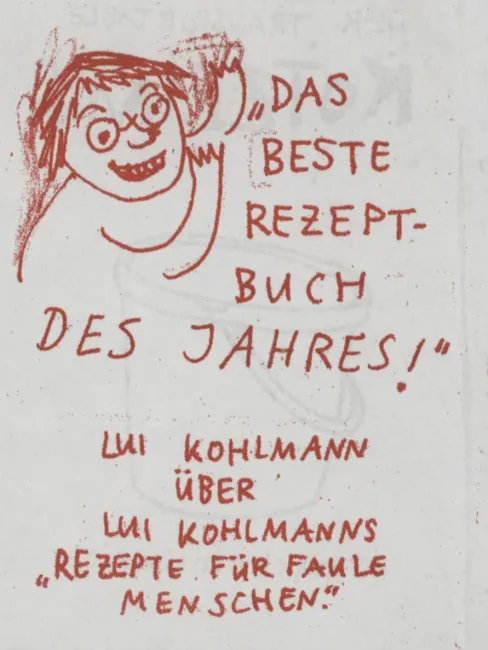 „DAS
BESTE
REZEPT-
BUCH
DES JAHRES!“
LUI KOHLMANN
ÜBER
LUI KOHLMANNS
„REZEPTE FÜR FAULE
MENSCHEN.“